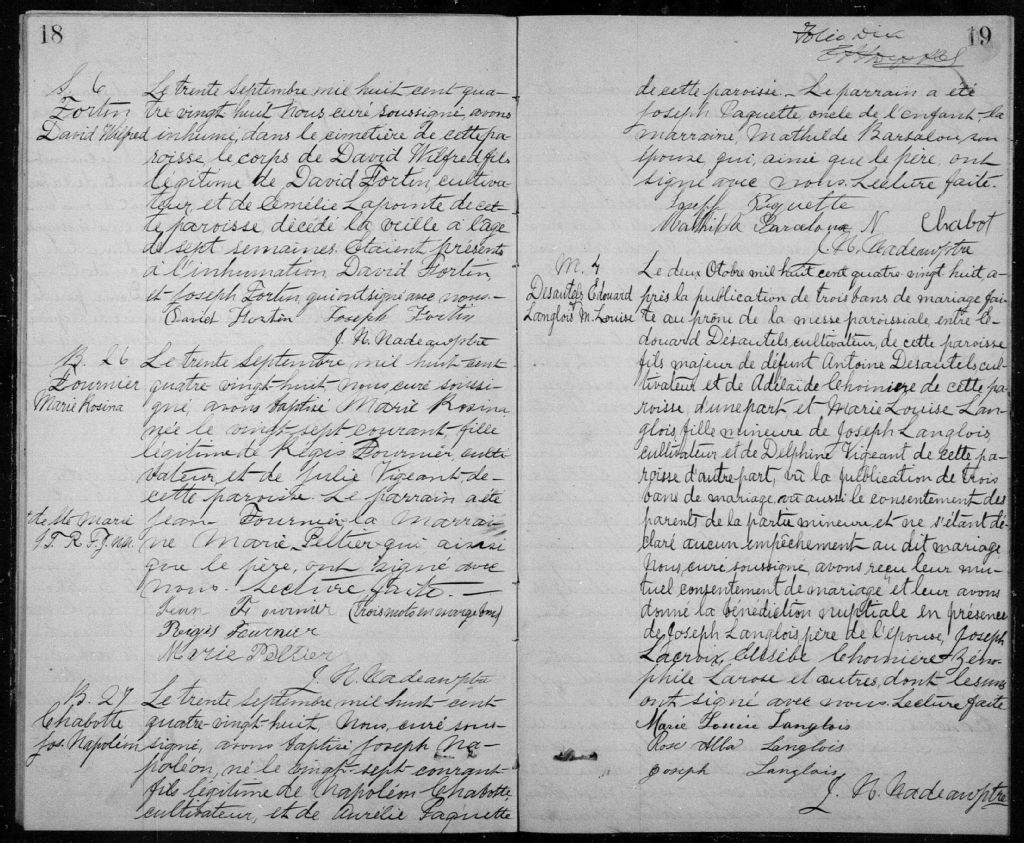 18
S. 6
Fortin
David Wilfred
Le trente Septembre mil huit cent qua-
tre vingt huit Nous curé soussigné, avons
inhumé, dans le cimetière de cette pa-
roisse, le corps de David Wilfred fils
légitime de David Fortin, cultiva-
teur, et de Lapointe de cet-
te paroisse, décédé la veille à l'age
de sept semaines. Etaient présents
à l'inhumation David Fortin,
et Joseph Fortin, qui ont signé avec nous.-
David Fortin Joseph Fortin
J. N. Nadeau ptre
B. 26
Fournier
Marie Rosina
Le trente Septembre, mil huit cent
quatre vingt-huit nous curé soussi-
gné, avons baptisé Marie Rosina
née le vingt-sept courant, fille
légitime de Régis Fournier, culti
vateur, et de Julie Vigeant, de-
cette paroisse. Le parrain a été
Jean Fournier, la Marrai-
ne Marie Peltier qui ainsi
que le père, ont signé avec
nous. Lecture faite. —
Marie
Jean Fournier (trois mots en marge bons)
Régis Fournier
Marie Peltier
J. N. Nadeau ptre
B. 27
Chabotte
Jos. Napoléon
Le trente Septembre, mil huit-cent
quatre-vingt-huit Nous, curé sous-
signé, avons baptisé Joseph Na-
poléon, né le vingt-sept courant
fils légitime de Napoléon Chabotte,
cultivateur, et de Aurélie Paquette
19
Folio dix
de cette paroisse. - Le parrain a été
Joseph Paquette, oncle de l'enfant, la
marraine, Mathilde Barsalou, son
épouse, qui, ainsi que le père, ont
signé avec nous. Lecture faite.
Joseph Paquette
Mathilda Barceloux N Chabot
J. N. Nadeau ptre
M. 4
Desautels Edouard
Langlois M. Louise
Le deux Otobre mil huit cent quatre-vingt huit, a-
près la publication de trois bans de mariage fai-
te au prône de la messe paroissiale, entre E-
douard Désautels, cultivateur, de cette paroisse
fils majeur de défunt Antoine Desautels, cul-
tivateur et de Adélaïde Choinière de cette pa-
roisse, d'une part, et Marie Louise Lan-
glois, fille mineure de Joseph Langlois,
cultivateur et de Delphine Vigeant de cette pa-
roisse d'autre part, vu la publication de trois
bans de mariage, vu aussi le consentement des
parents de la partie mineure, et ne s'étant dé-
claré aucun empêchement au dit mariage
Nous, curé soussigné, avons reçu leur mu-
tuel consentement de mariage et leur avons
donné la bénédiction nuptiale en présence
de Joseph Langlois, père de l'épouse, Joseph
Lacroix, Elisèbe Choinière, Zéno-
phile Larose et autres, dont les uns
ont signé avec nous. Lecture faite
Marie Louise Langlois
Rose Alba Langlois
Joseph Langlois
J. N. Nadeau ptre